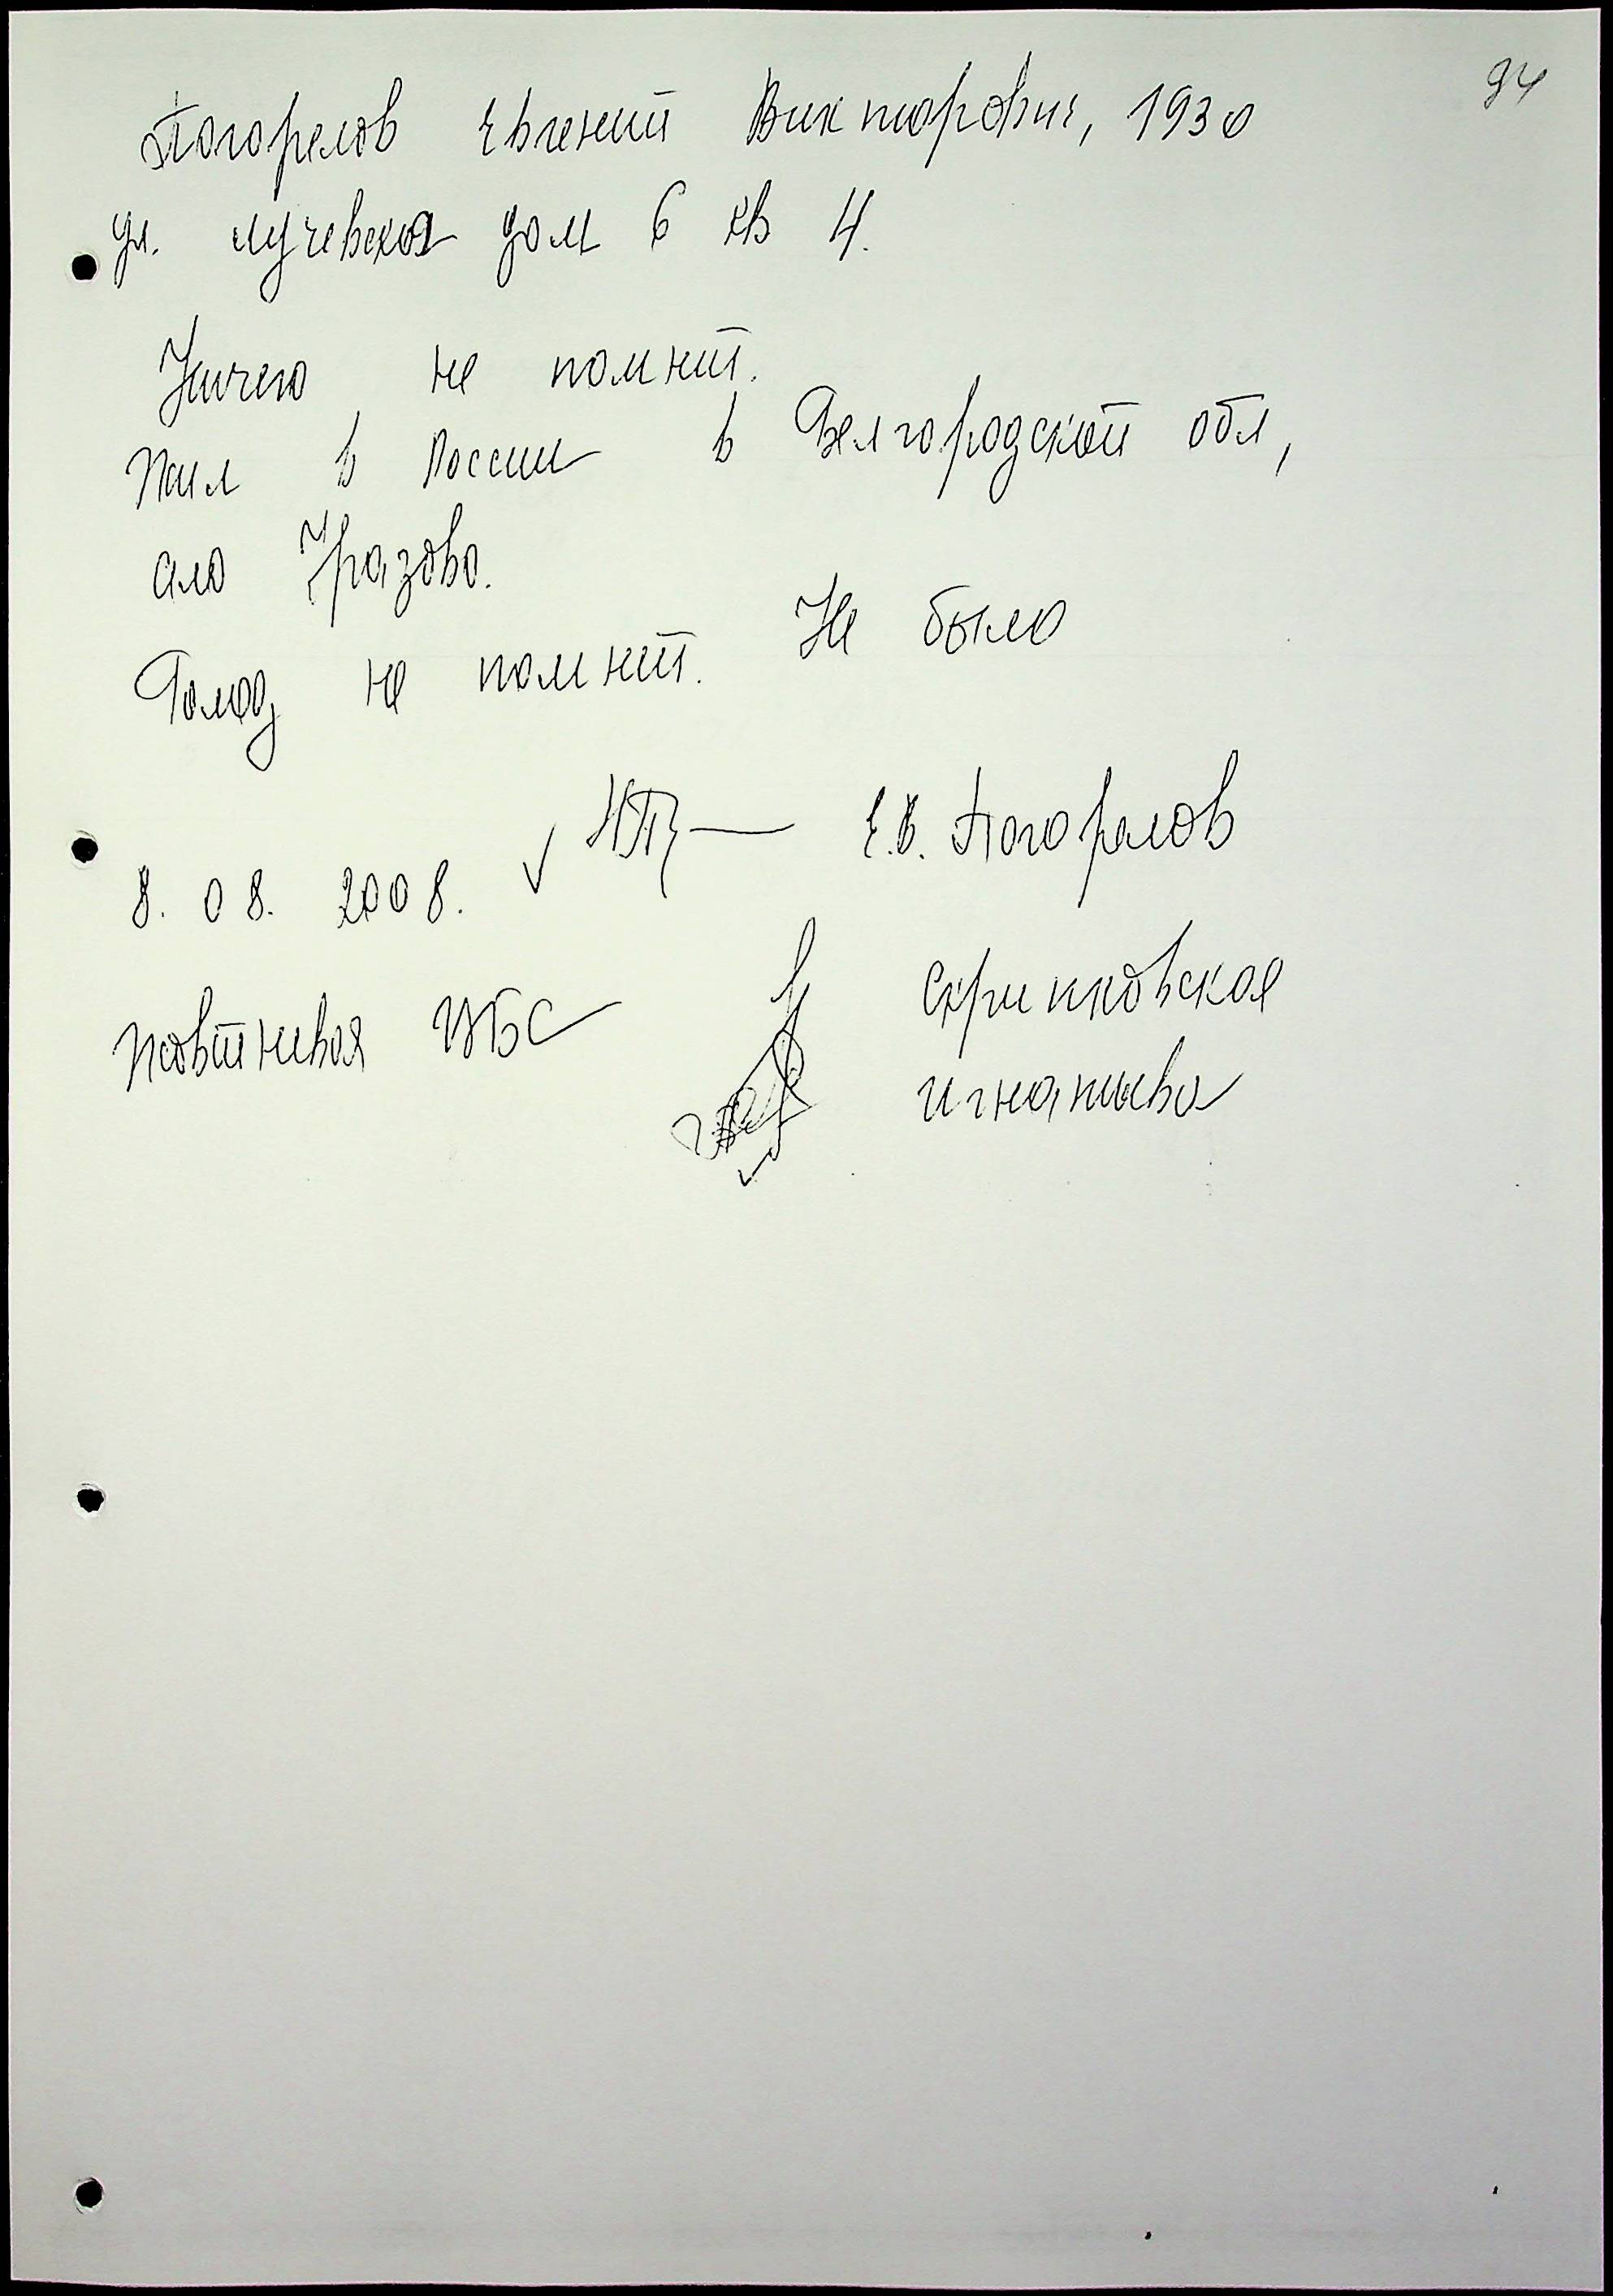 94
Погорелов Евгений Викторович, 1930
ул. Лучевская дом 6 кв 4.
Ничего не помнит.
Жил в России в Белгородской обл,
село Уразово.
Голод не помнит. Не было
Е.В. Погорелов
8. 08. 2008.
Скрипковская
Жовтневая ЦБС
Игнатьева